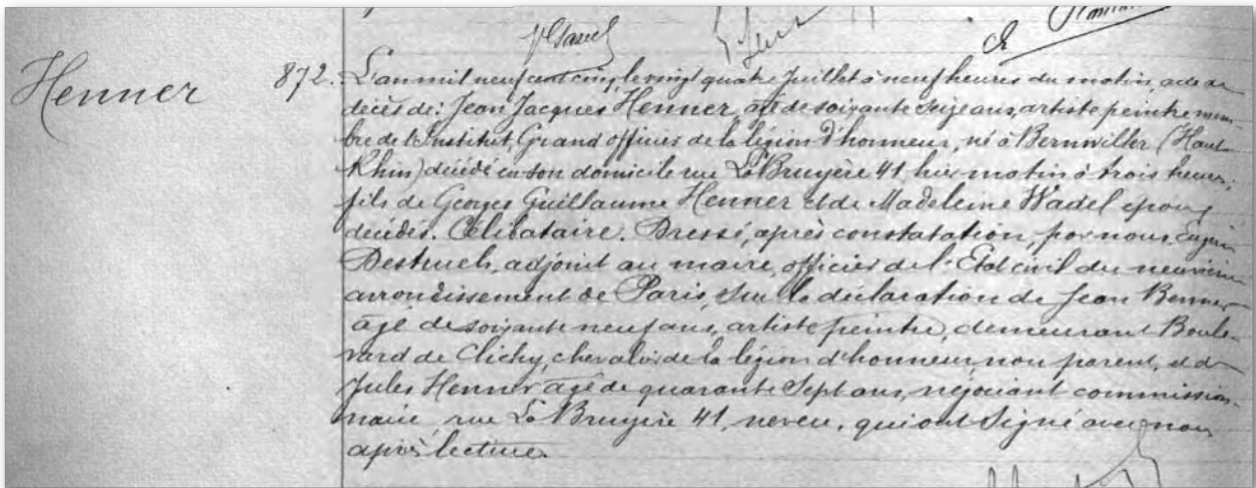 Henner
872. L'an mil neuf cent cinq, le vingt quatre Juillet à neuf heures du matin, acte de
décès de: Jean Jacques Henner, âgé de soixante seize ans, artiste peintre mem-
bre de l'Institut, Grand officier de la légion d'honneur, né à Bernwiller (Haut
Rhin) décédé en son domicile rue La Bruyère 41, hier matin à trois heures;
fils de Georges Guillaume Henner et de Madeleine Wadel époux
décédés. Célibataire. Dressé, après constatation, par nous, Eugène
adjoint au maire, officier de l'Etat civil du neuvième
arrondissement de Paris, sur la déclaration de Jean Benner
âgé de soixante neuf ans, artiste peintre, demeurant Boule-
vard de Clichy, chevalier de la légion d'honneur, non parent, et de
Jules Henner âgé de quarante Sept ans, négociant commission-
naire rue La Bruyère 41, neveu, qui ont Signé avec nous
après lecture.